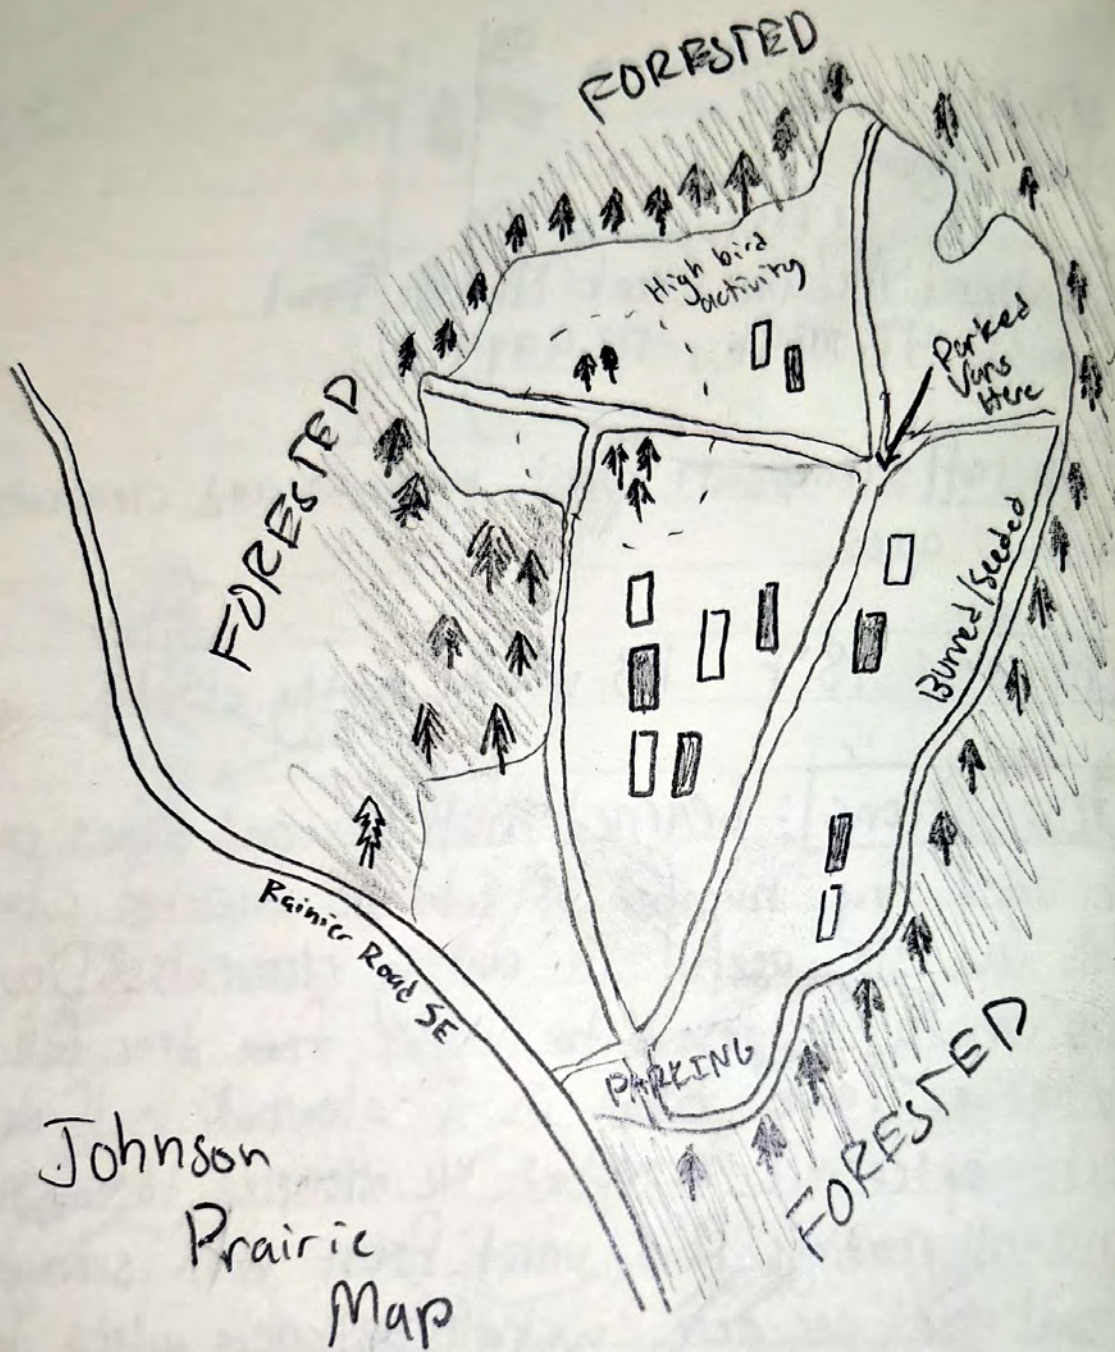 FORESTED
High bird
activity
Parked
Vans
Here
FORESTED
Burned/Seeded
Rainier Road SE
PARKING
FORESTED
Johnson
Prairie
Map